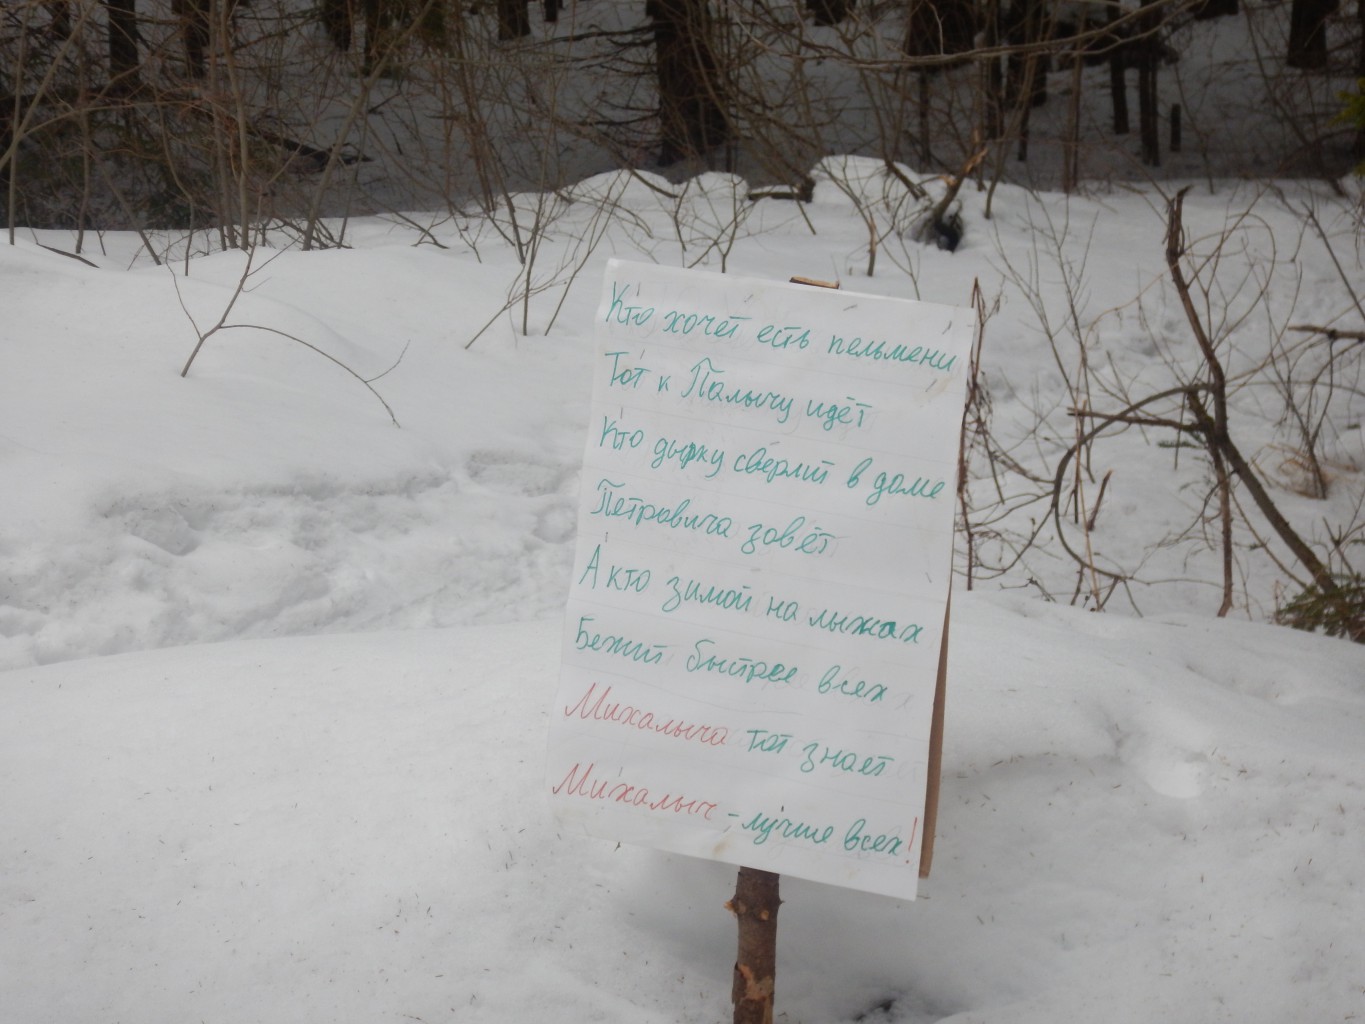 Кто хочет есть пельмени
Тот к Палычу идёт
Кто дырку сверлит в доме
Петровича зовёт
А кто зимой на лыжах
Бежит быстрее всех
Михалыча тот знает
Михалыч - лучше всех!